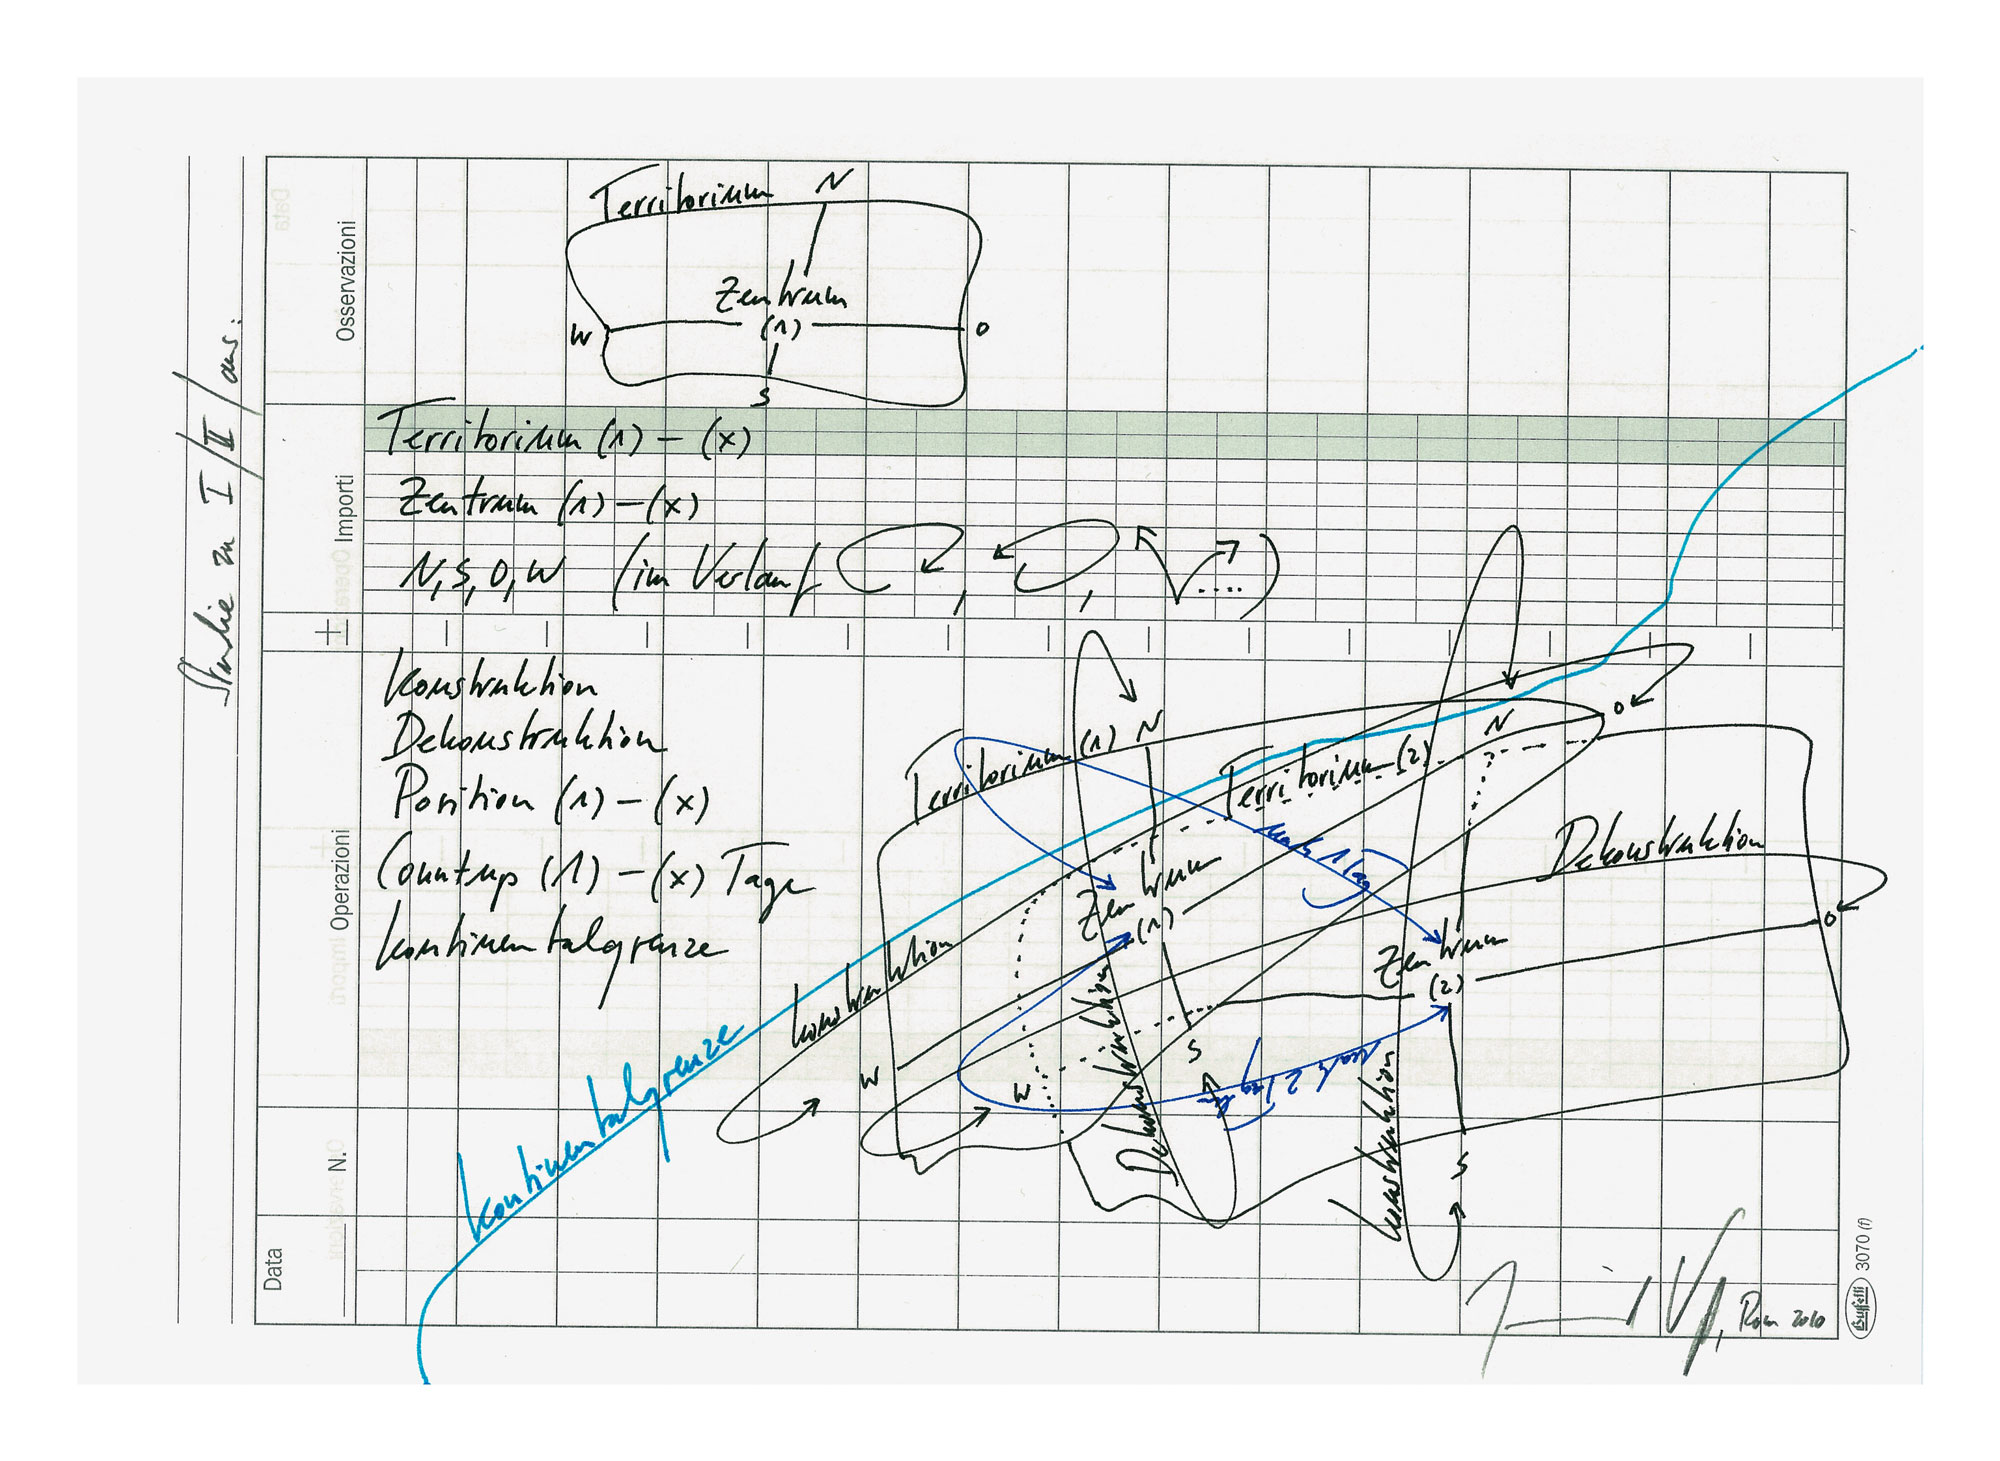 Studie zu I/II/aus:
Osservazioni
Importi
Operazioni
N.
Data
Territorium N
Zentrum
W (1) O
S
Territorium (1) – (x)
Zentrum (1) – (x)
N, S, O, W (im Verlauf , , ....)
Konstruktion
Dekonstruktion
Position (1) – (x)
Countup (1) – (x) Tage
Kontinentalgrenze
Kontinentalgrenze
Territorium (1) N
Territorium (2) N O
Zentrum
(1)
nach 1 Tag
Dekonstruktion
Konstruktion
Zentrum
(2)
O
W
S
W
Dekonstruktion
nach 2 Tagen
Konstruktion
S
Rom 2010
Buffetti 3070 (f)